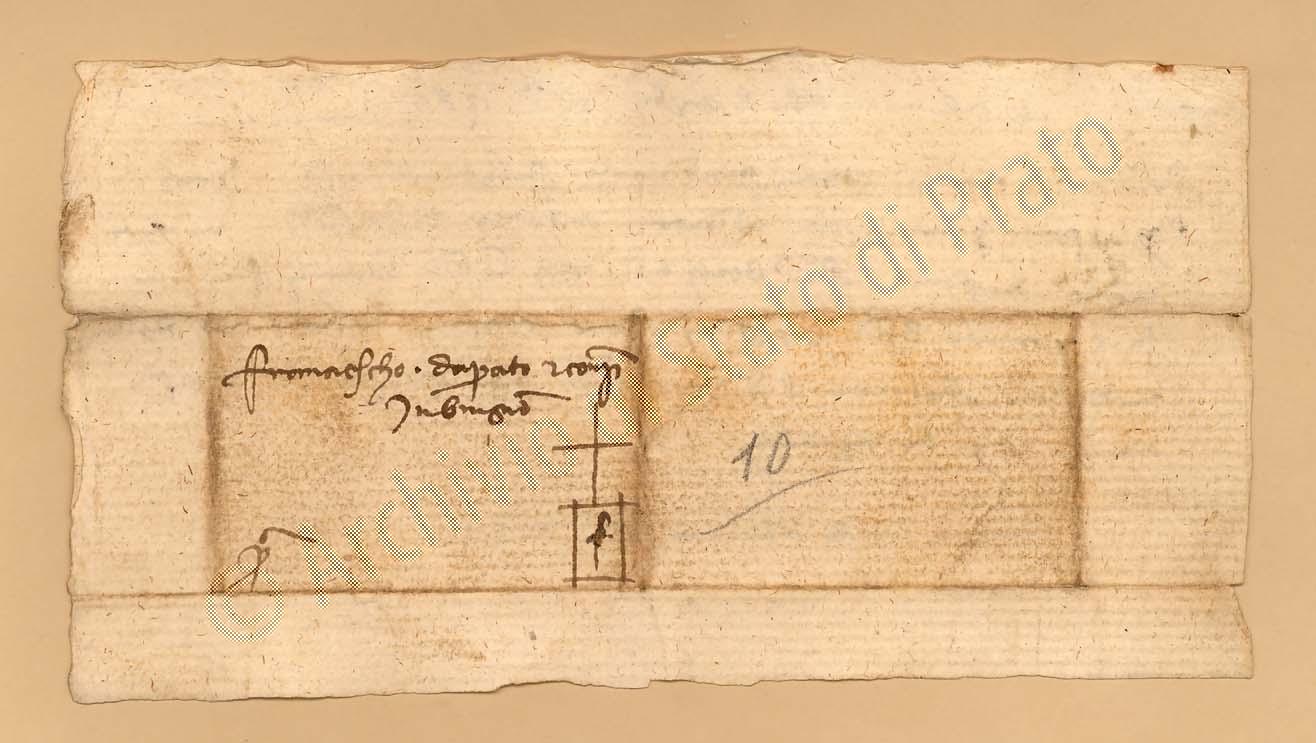 franciescho · daprato e conp
in vingnione
10
f
© Archivio di Stato di Prato